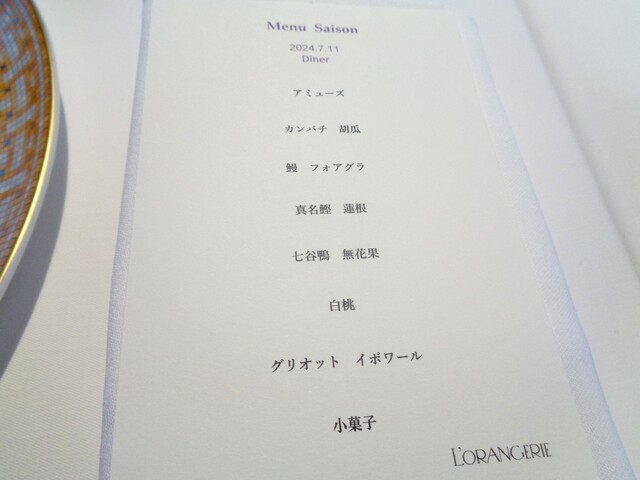 Menu Saison
2024.7.11
Dîner
アミューズ
カンパチ　胡瓜
鰻　フォアグラ
真名鰹　蓮根
七谷鴨　無花果
白桃
グリオット　イボワール
小菓子
L'ORANGERIE